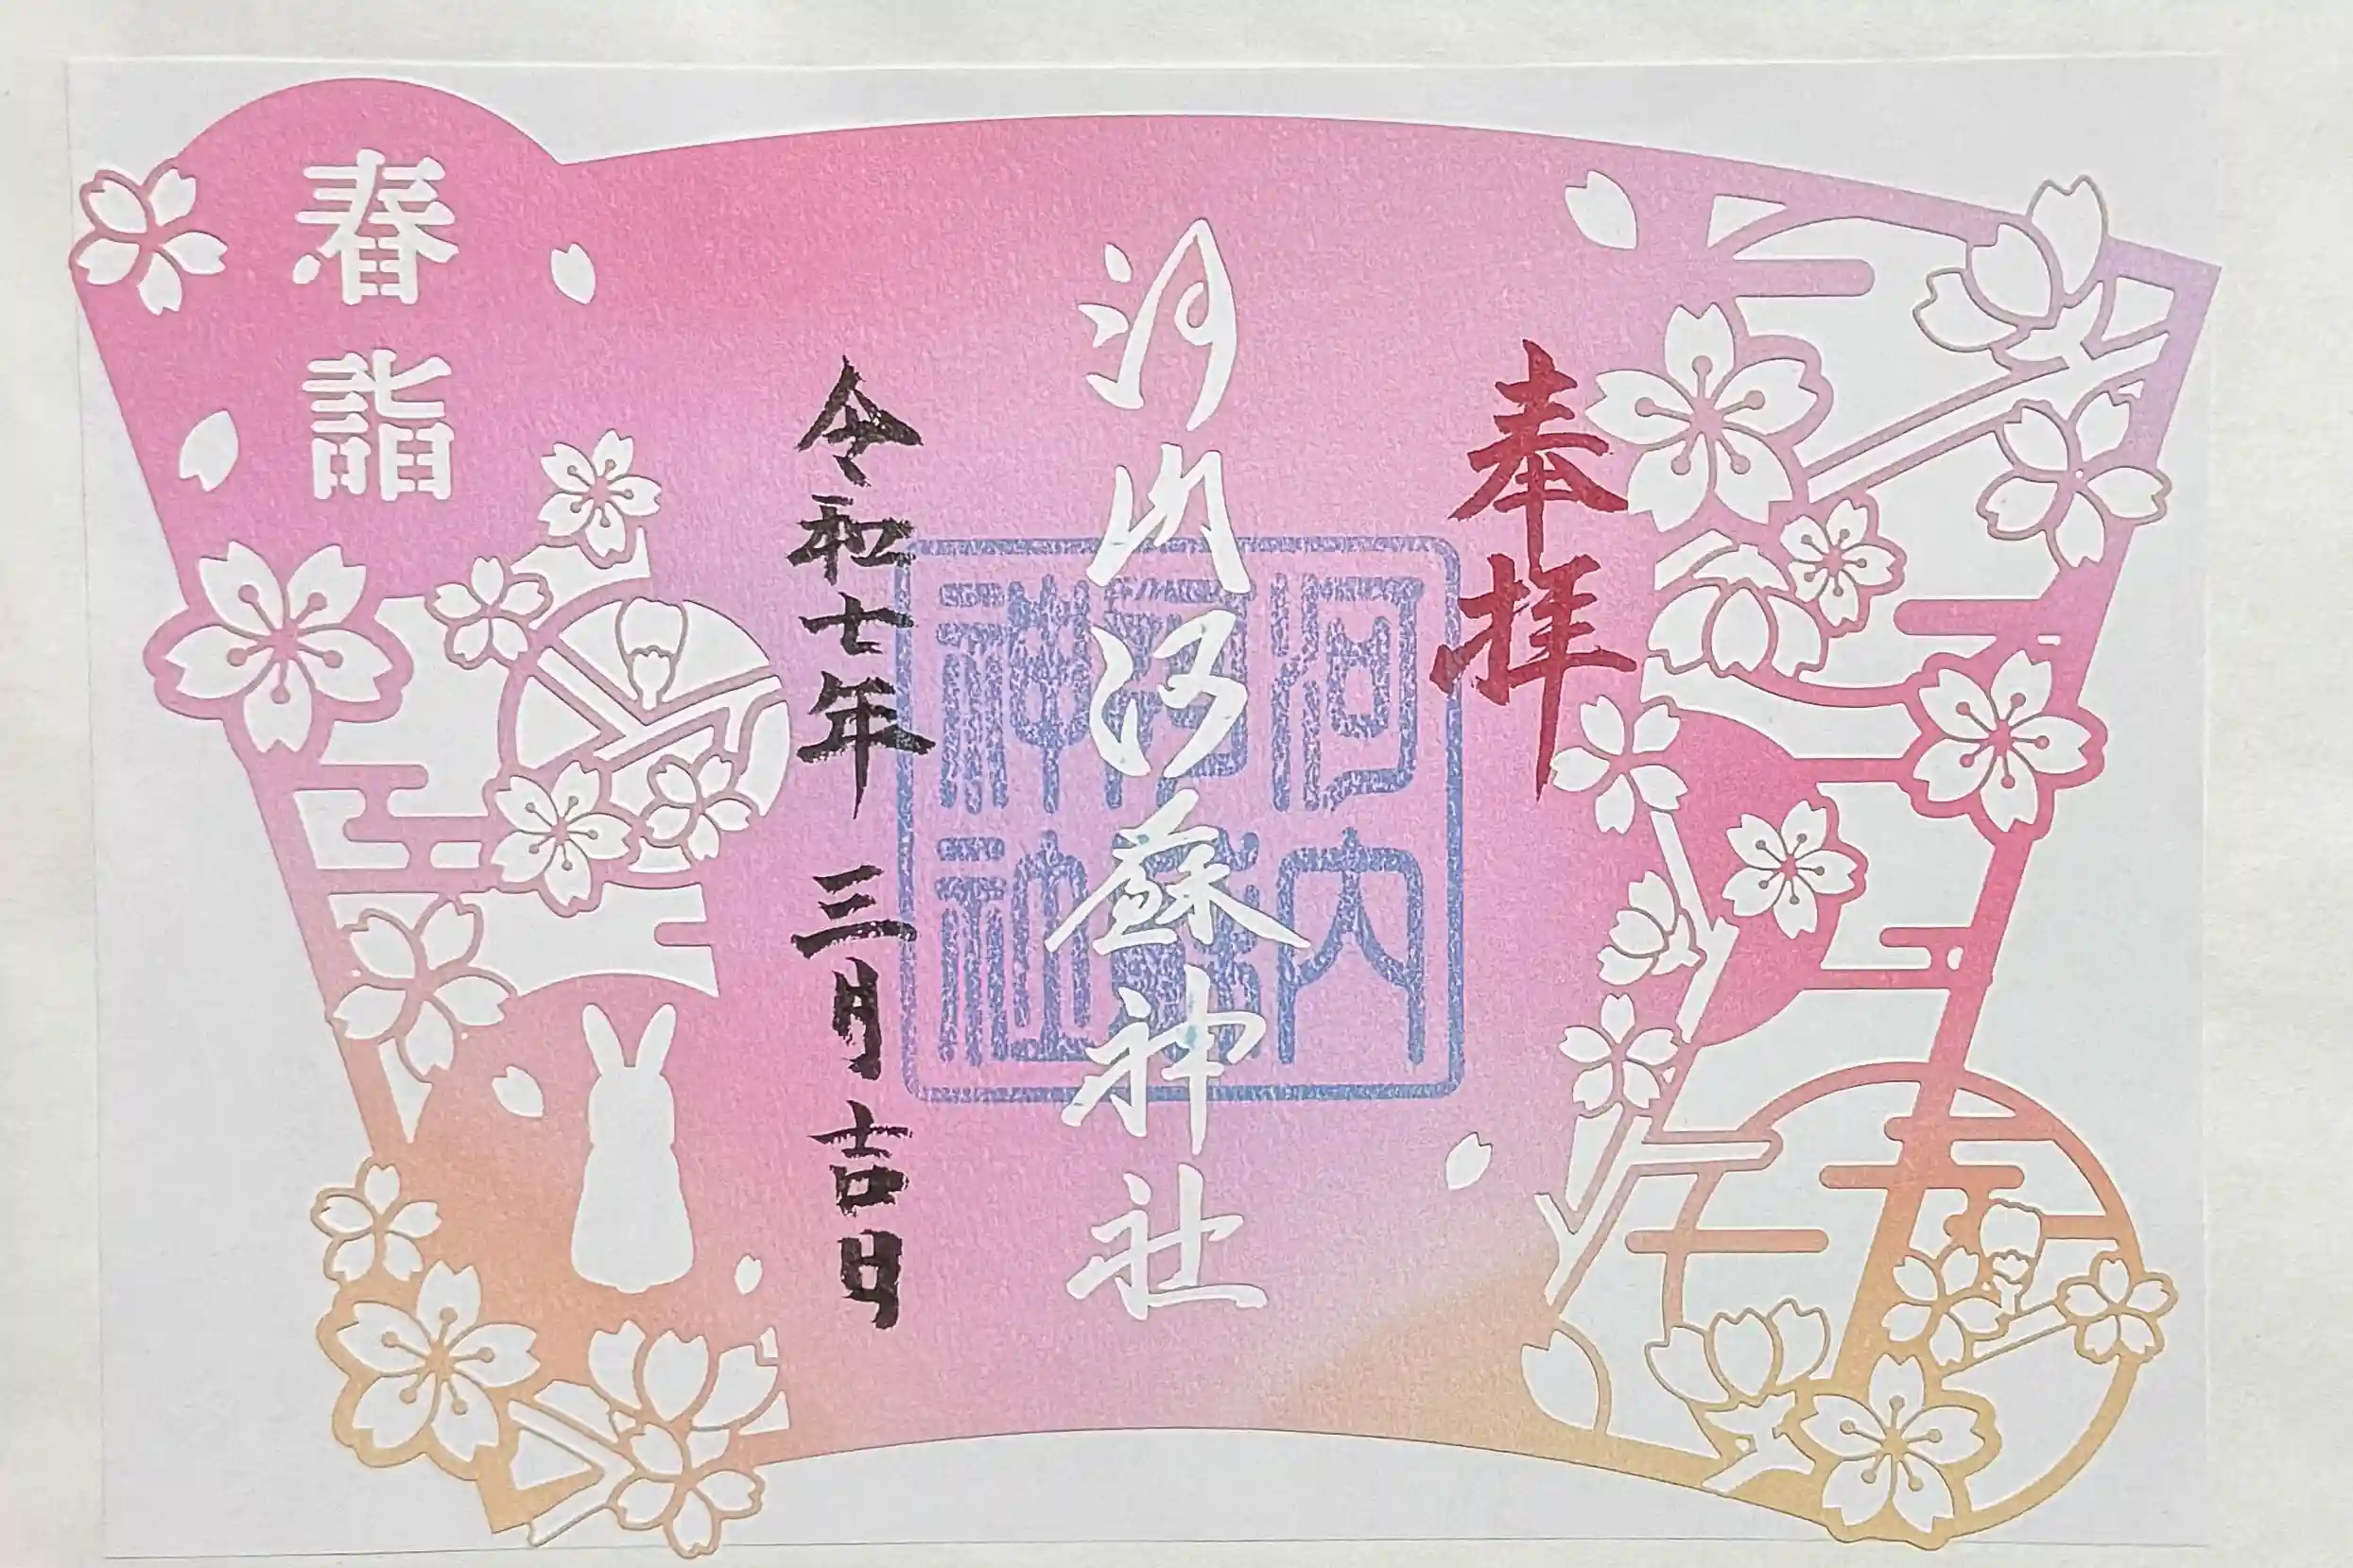 奉拝
河内阿蘇神社
河内
阿蘇
神社
令和七年 三月吉日
春詣